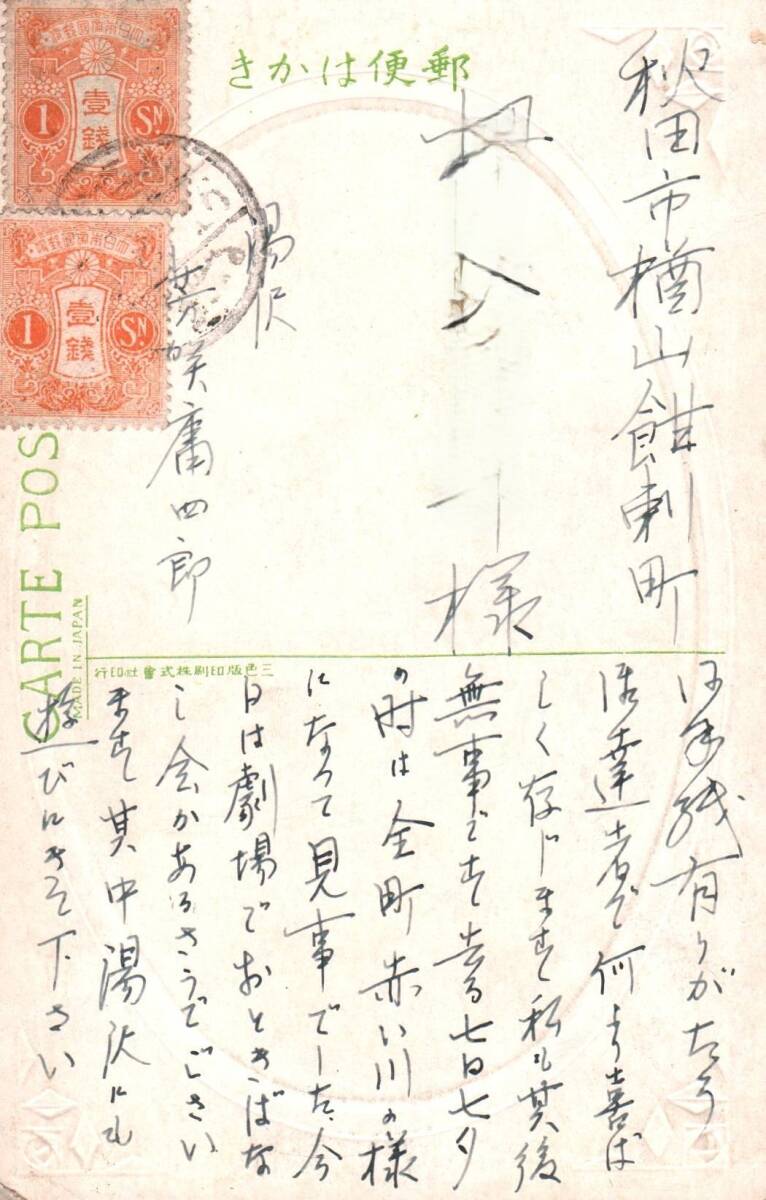 郵便はかき
秋田市楢山餌刺町
様
湯沢
庸四郎
壹錢
1 SN
壹錢
1 SN
CARTE POS
MADE IN JAPAN
三色版印刷株式會社印行
御手紙有りがたう
御達者で何より喜ば
しく存じます私も其後
無事です去る七日七夕
の時は全町赤い川の様
になつて見事でした、今
日は劇場でおときばな
し会があるさうでござい
ます其中湯沢にも
遊びにきて下さい